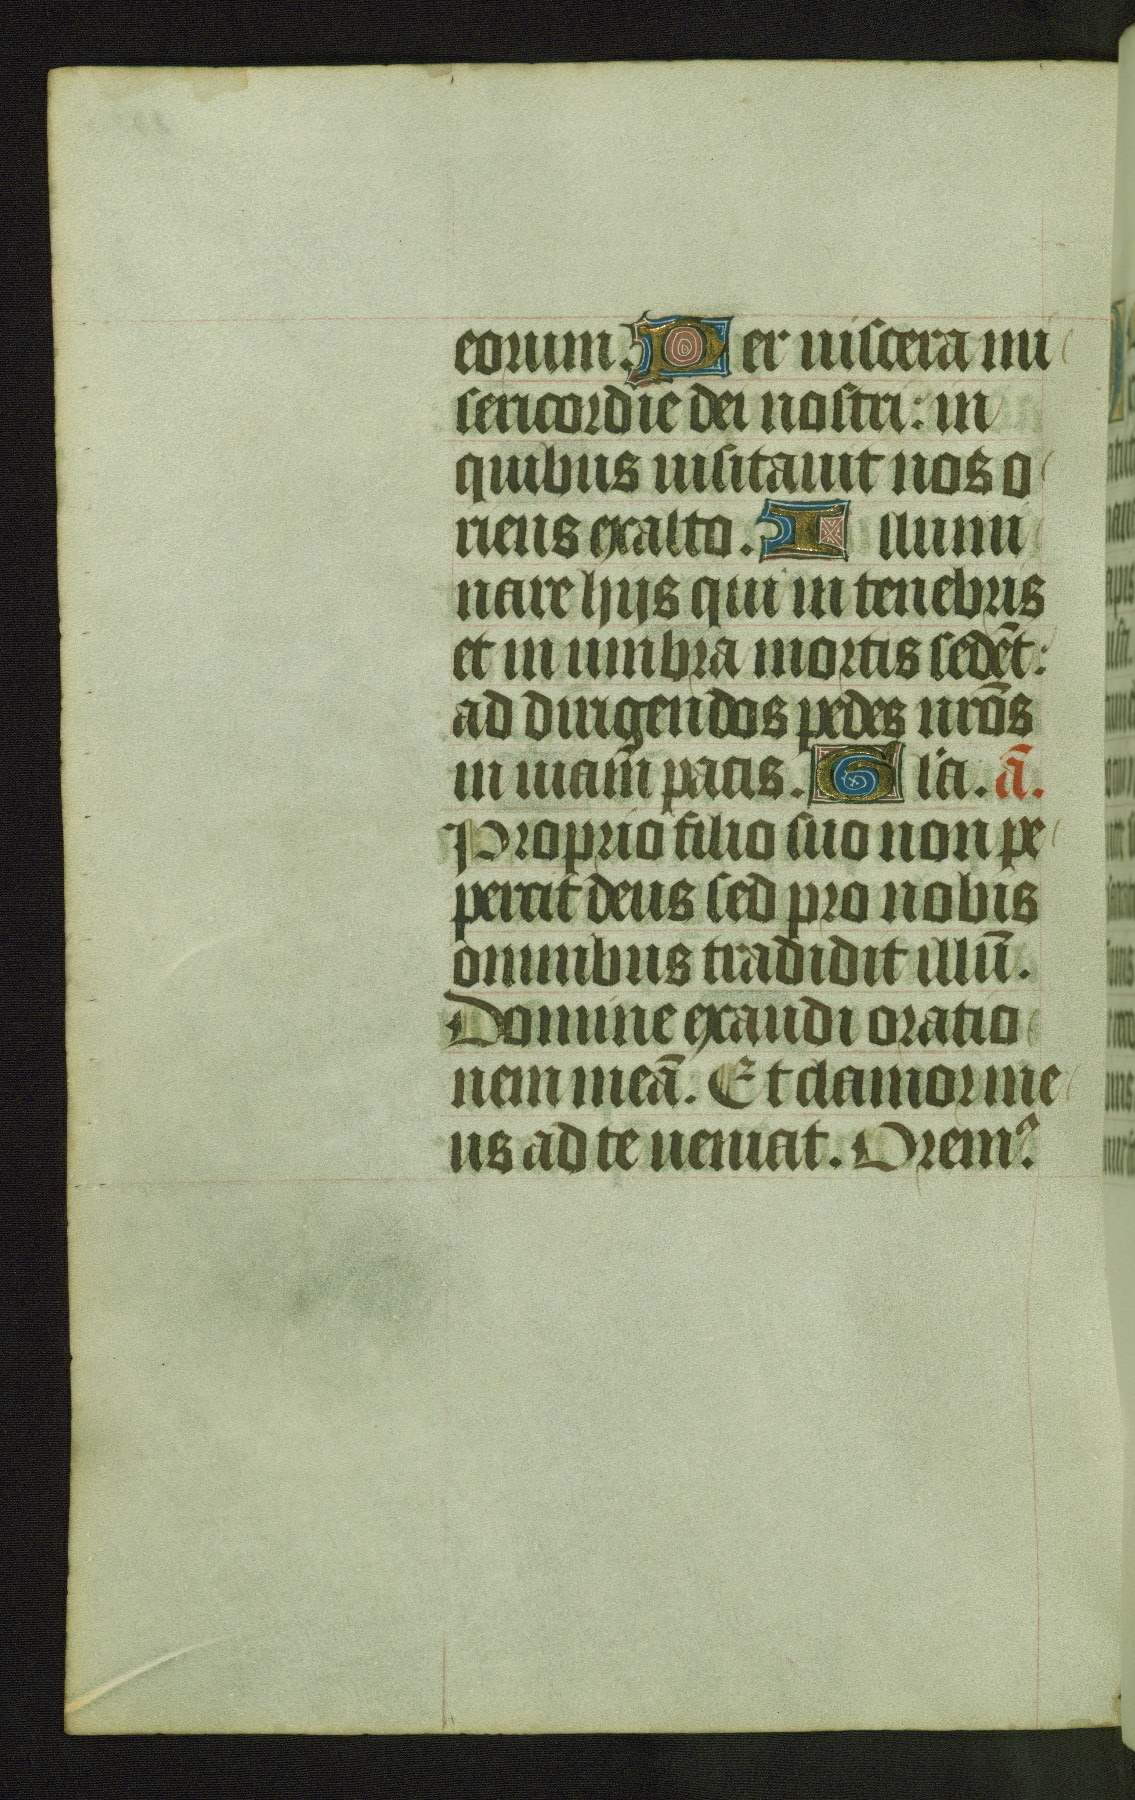 eorum. Per uiscera mi
sericordie dei nostri: in
quibus uisitauit nos o
riens exalto. Illumi
nare hijs qui in tenebris
et in umbra mortis sedēt:
ad dirigendos pedes nrōs
in uiam̄ pacis. Gl'ia. ā.
Proprio filio suo non pe
percit deus sed pro nobis
omnibus tradidit illū.
Domine exaudi oratio
nem meā. Et clamor me
us ad te ueniat. Oremꝰ